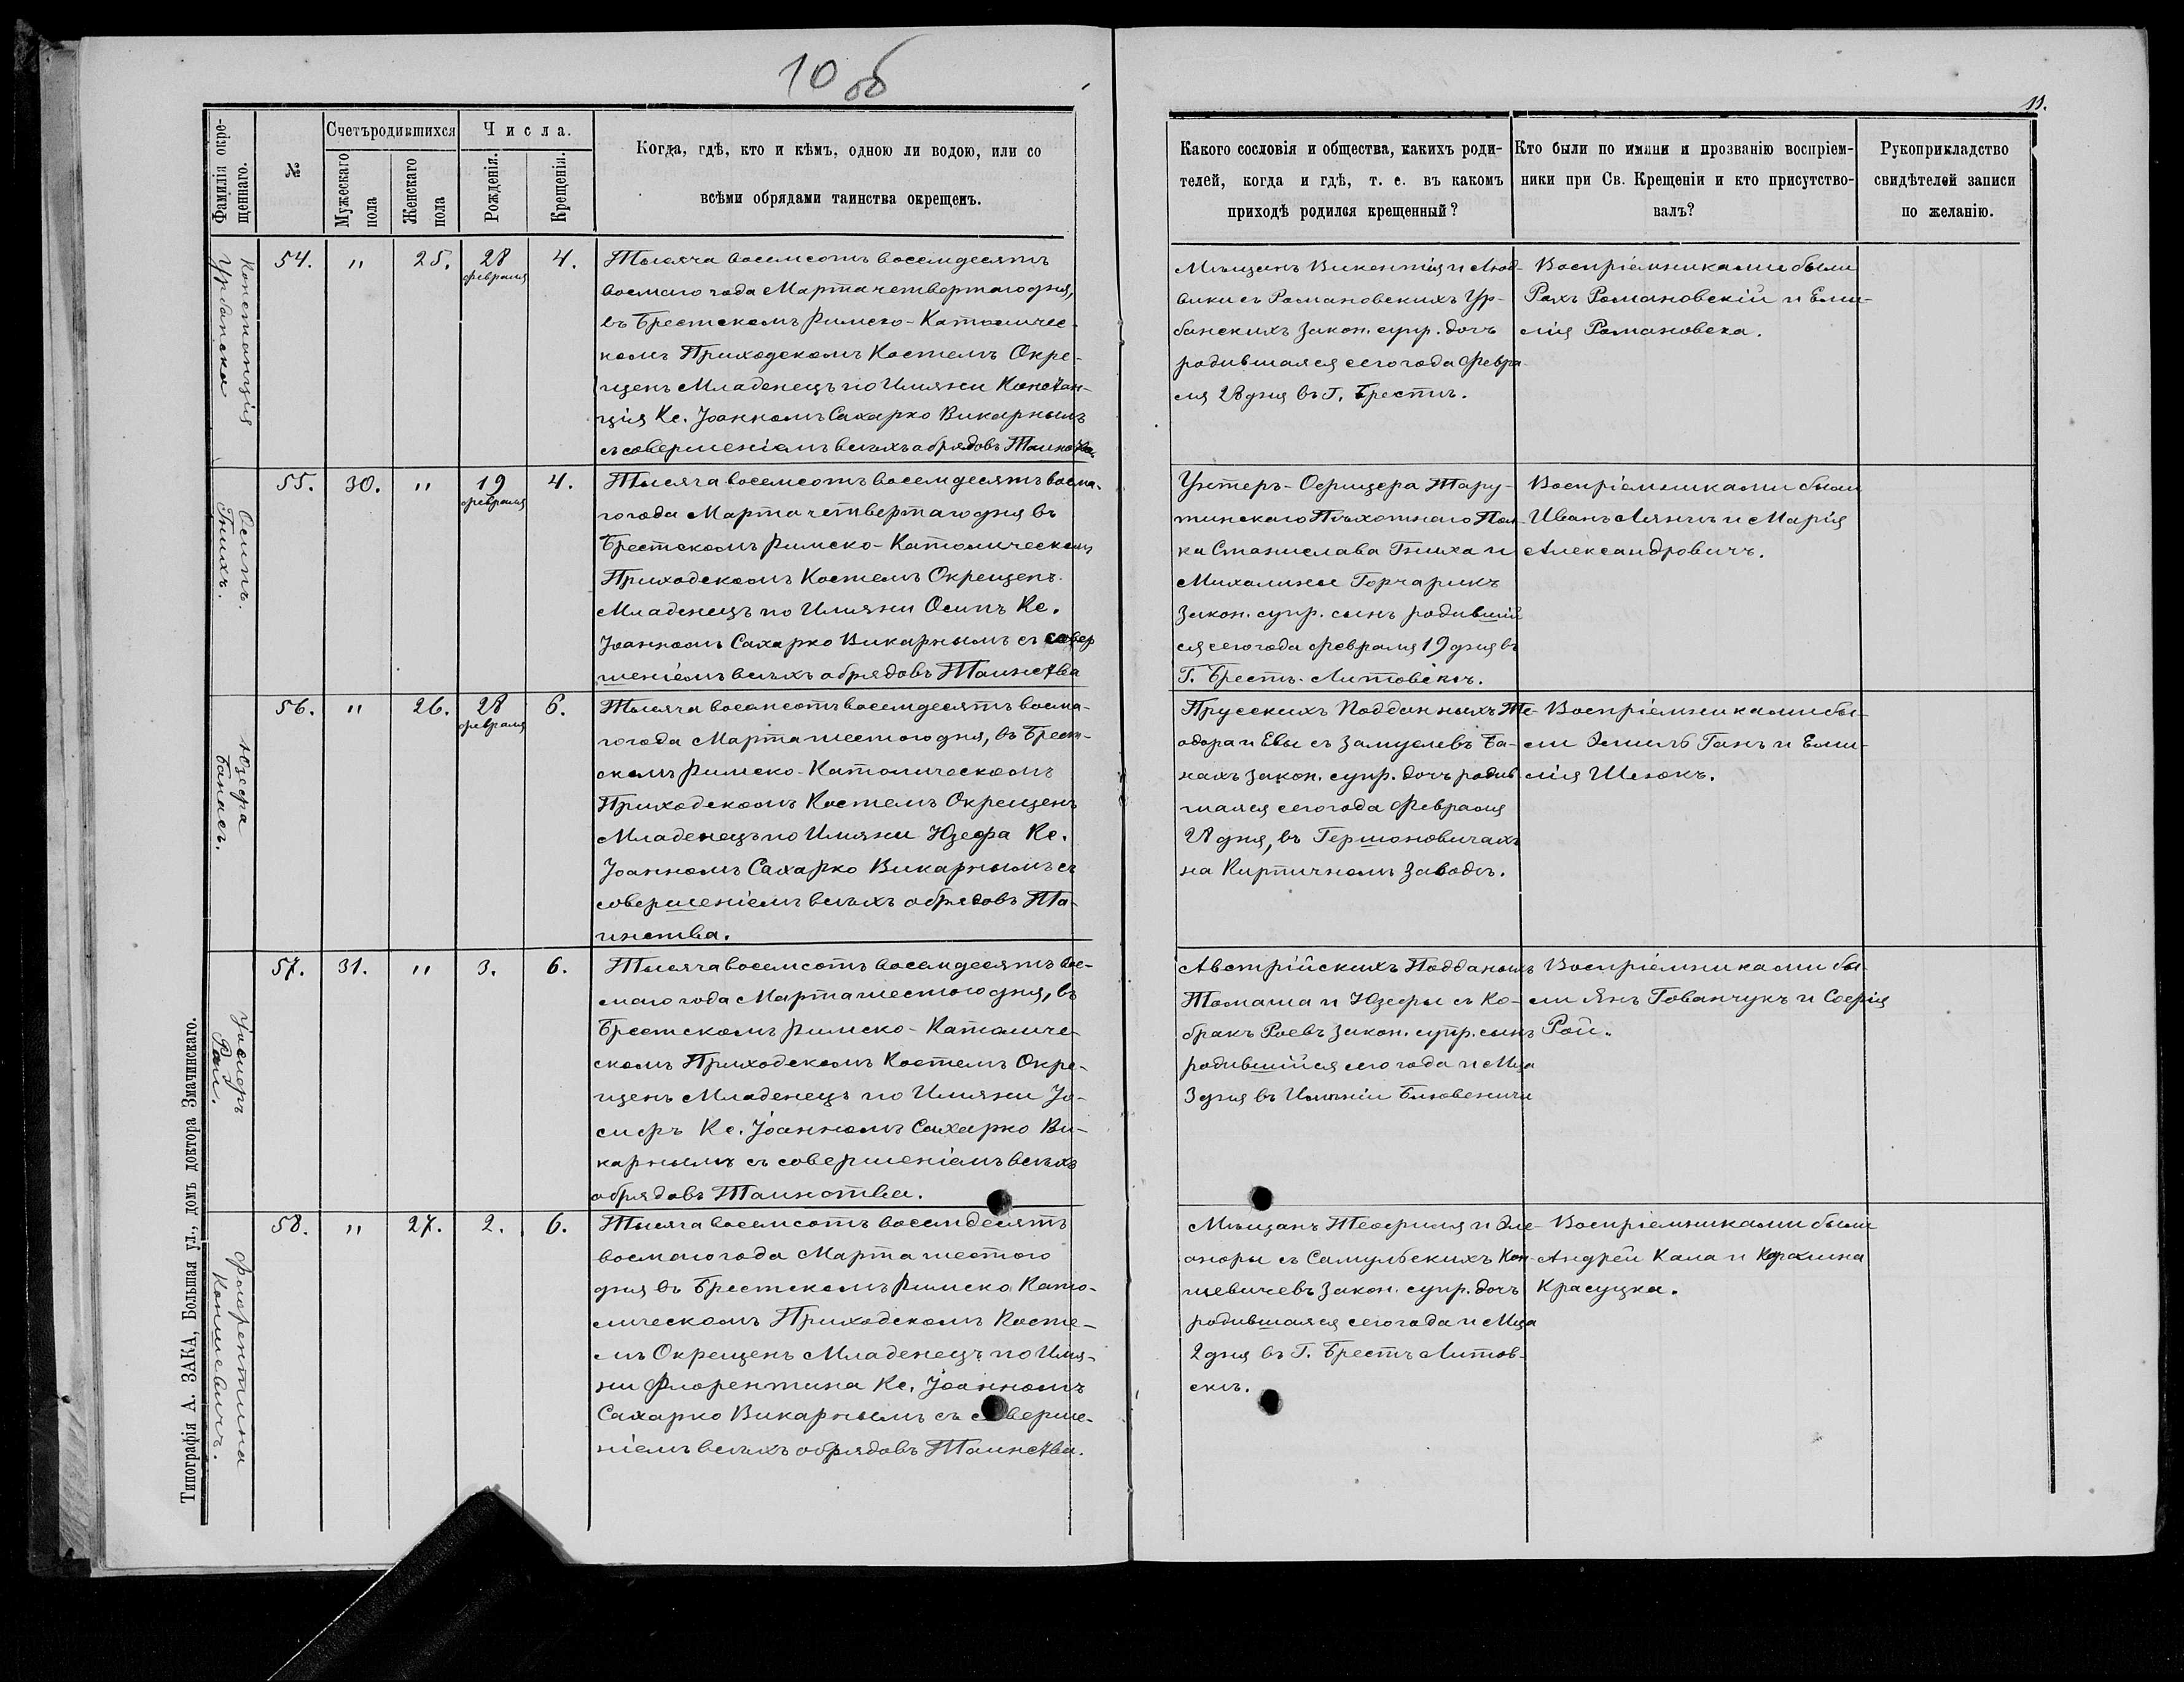 10 об
11.
Фамилія окрещеннаго.
№
Счетъ родившихся
Мужескаго пола
Женскаго пола
Числа.
Рожденія.
Крещенія.
Когда, гдѣ, кто и кѣмъ, одною ли водою, или со
всѣми обрядами таинства окрещенъ.
Какого сословія и общества, какихъ роди-
телей, когда и гдѣ, т. е. въ какомъ
приходѣ родился крещенный?
Кто были по имени и прозванію воспріем-
ники при Св. Крещеніи и кто присутство-
валъ?
Рукоприкладство
свидѣтелей записи
по желанію.
Констанція
Урбанска
54. " 25. 28 февраля 4.
Тысяча восемсотъ восемдесятъ
восмаго года Марта четвертаго дня,
въ Брестскомъ Римско-Католичес-
комъ Приходскомъ Костелѣ Окре-
щенъ Младенецъ по Имяни Констан-
ція Кс. Іоанномъ Сахарко Викарнымъ
съ совершеніемъ всѣхъ обрядовъ Таинства.
Мѣщанъ Викентія и Люд-
вики съ Романовскихъ Ур-
банскихъ закон. супр. дочь
родившаяся сего года Февра-
ля 28 дня въ Г. Брестѣ.
Воспріемниками были
Рохъ Романовскій и Еми-
лія Романовска.
Осипъ.
Гнихъ.
55. 30. " 19 февраля 4.
Тысяча восемсотъ восемдесятъ восма-
го года Марта четвертаго дня въ
Брестскомъ Римско-Католическомъ
Приходскомъ Костелѣ Окрещенъ
Младенецъ по Имяни Осипъ Кс.
Іоанномъ Сахарко Викарнымъ съ совер
шеніемъ всѣхъ обрядовъ Таинства
Унтеръ-Офицера Тару-
тинскаго Пѣхотнаго Пол-
ка Станислава Гниха и
Михалины Горчарикъ
закон. супр. сынъ родившій
ся сего года Февраля 19 дня въ
Г. Брестъ-Литовскѣ.
Воспріемниками были
Иванъ и Марія
Александровичъ.
Юзефа
Банасъ.
56. " 26. 28 февраля 6.
Тысяча восемсотъ восемдесятъ восма-
го года Марта шестого дня, въ Брест-
скомъ Римско-Католическомъ
Приходскомъ Костелѣ Окрещенъ
Младенецъ по Имяни Юзефа Кс.
Іоанномъ Сахарко Викарнымъ съ
совершеніемъ всѣхъ обрядовъ Та-
инства.
Прусскихъ Подданныхъ Те-
одора и Евы съ
закон. супр. дочь родив
шаяся сего года Февраля
28 дня, въ Гершоновичахъ
на Кирпичномъ Заводѣ.
Воспріемниками бы-
ли Эмиль Ганъ и Еми-
лія Шлюкъ.
Іосифъ
Рой.
57. 31. " 3. 6.
Тысяча восемсотъ восемдесятъ вос-
маго года Марта шестого дня, въ
Брестскомъ Римско-Католиче-
скомъ Приходскомъ Костелѣ Окре-
щенъ Младенецъ по Имяни Іо-
сифъ Кс. Іоанномъ Сахарко Ви-
карнымъ съ совершеніемъ всѣхъ
обрядовъ Таинства.
Австрійскихъ Подданыхъ
Томаша и Юзефы съ Ко-
бракъ Роевъ закон. супр. сынъ
родившійся сего года и Мца
3 дня въ Имѣніи
Воспріемниками бы-
ли Янъ Гованчукъ и Софія
Рой.
Флорентина
Концевичъ.
58. " 27. 2. 6.
Тысяча восемсотъ восемдесятъ
восмаго года Марта шестого
дня въ Брестскомъ Римско Като-
лическомъ Приходскомъ Косте-
лѣ Окрещенъ Младенецъ по Имя-
ни Флорентина Кс. Іоанномъ
Сахарко Викарнымъ съ соверше-
ніемъ всѣхъ обрядовъ Таинства.
Мѣщанъ Теофиля и Эле-
оноры съ Самульскихъ Кон-
цевичевъ закон. супр. дочь
родившаяся сего года и Мца
2 дня въ Г. Брестъ Литов-
скѣ.
Воспріемниками были
Андрей Кала и Каролина
Красуцка.
Типографія А. ЗАКА, Большая ул., домъ доктора Змачинскаго.